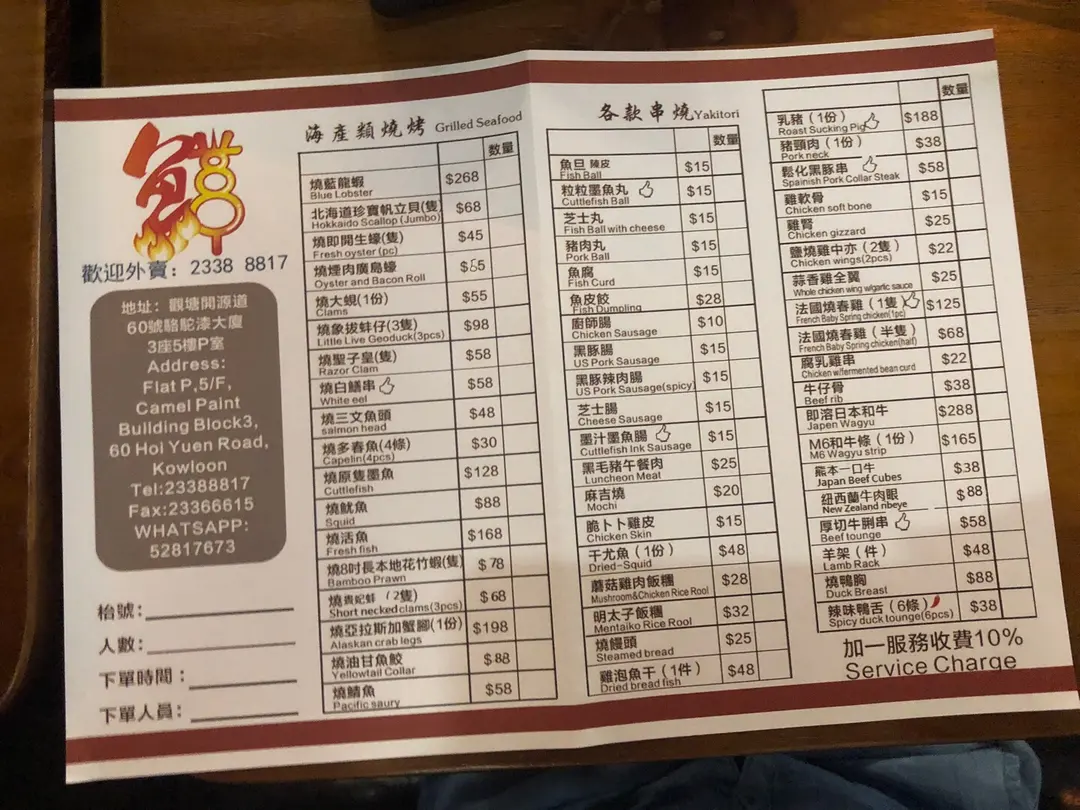 鱻
歡迎外賣：2338 8817
地址：觀塘開源道
60號駱駝漆大廈
3座5樓P室
Address:
Flat P,5/F,
Camel Paint
Building Block3,
60 Hoi Yuen Road,
Kowloon
Tel:23388817
Fax:23366615
WHATSAPP:
52817673
枱號：
人數：
下單時間：
下單人員：
海產類燒烤 Grilled Seafood
數量
燒藍龍蝦 $268
Blue Lobster
北海道珍寶帆立貝(隻) $68
Hokkaido Scallop (Jumbo)
燒即開生蠔(隻) $45
Fresh oyster (pc)
燒煙肉廣島蠔
Oyster and Bacon Roll
燒大蜆(1份) $55
Clams
燒象拔蚌仔(3隻) $98
Little Live Geoduck(3pcs)
燒聖子皇(隻) $58
Razor Clam
燒白鱔串 $58
White eel
燒三文魚頭 $48
salmon head
燒多春魚(4條) $30
Capelin(4pcs)
燒原隻墨魚 $128
Cuttlefish
燒魷魚 $88
Squid
燒活魚 $168
Fresh fish
燒8吋長本地花竹蝦(隻) $78
Bamboo Prawn
燒貴妃蚌（2隻） $68
Short necked clams(3pcs)
燒亞拉斯加蟹腳(1份) $198
Alaskan crab legs
燒油甘魚鮫 $88
Yellowtail Collar
燒鯖魚 $58
Pacific saury
各款串燒Yakitori
數量
魚旦 陳皮 $15
Fish Ball
粒粒墨魚丸 $15
Cuttlefish Ball
芝士丸 $15
Fish Ball with cheese
豬肉丸 $15
Pork Ball
魚腐 $15
Fish Curd
魚皮餃 $28
Fish Dumpling
廚師腸 $10
Chicken Sausage
黑豚腸 $15
US Pork Sausage
黑豚辣肉腸 $15
US Pork Sausage(spicy)
芝士腸 $15
Cheese Sausage
墨汁墨魚腸 $15
Cuttlefish Ink Sausage
黑毛豬午餐肉 $25
Luncheon Meat
麻吉燒 $20
Mochi
脆卜卜雞皮 $15
Chicken Skin
干尤魚（1份） $48
Dried-Squid
蘑菇雞肉飯糰 $28
Mushroom&Chicken Rice Rool
明太子飯糰 $32
Mentaiko Rice Rool
燒饅頭 $25
Steamed bread
雞泡魚干（1件） $48
Dried bread fish
數量
乳豬（1份） $188
Roast Sucking Pig
豬頸肉（1份） $38
Pork neck
鬆化黑豚串 $58
Spainish Pork Collar Steak
雞軟骨 $15
Chicken soft bone
雞腎 $25
Chicken gizzard
鹽燒雞中亦（2隻） $22
Chicken wings(2pcs)
蒜香雞全翼 $25
Whole chicken wing w/garlic sauce
法國燒春雞（1隻） $125
French Baby Spring chicken(1pc)
法國燒春雞（半隻） $68
French Baby Spring chicken(half)
腐乳雞串 $22
Chicken w/fermented bean curd
牛仔骨 $38
Beef rib
即溶日本和牛 $288
Japen Wagyu
M6和牛條（1份） $165
M6 Wagyu strip
熊本一口牛 $38
Japan Beef Cubes
紐西蘭牛肉眼 $88
New Zealand ribeye
厚切牛脷串 $58
Beef tounge
羊架（件） $48
Lamb Rack
燒鴨胸 $88
Duck Breast
辣味鴨舌（6條） $38
Spicy duck tounge(6pcs)
加一服務收費10%
Service Charge